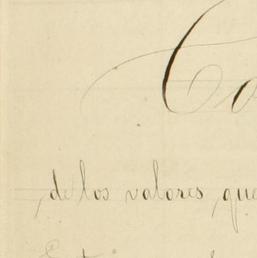 Co
de los valores, que